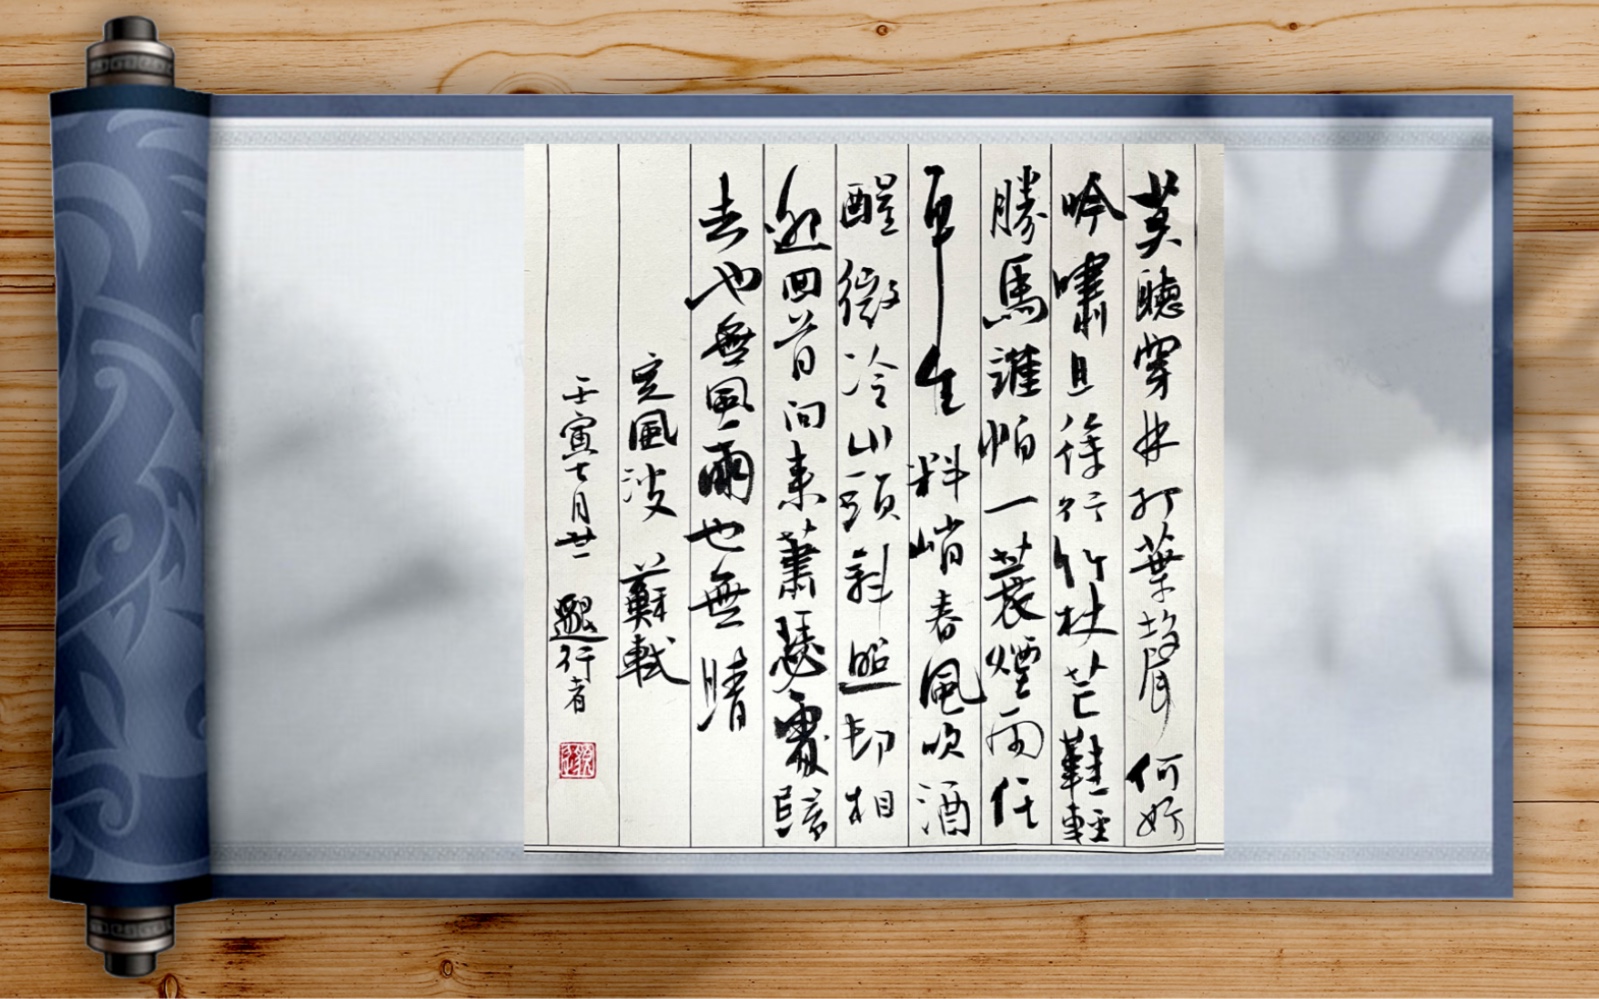 莫聽穿林打葉聲何妨
吟嘯且徐行竹杖芒鞋輕
勝馬誰怕一蓑煙雨任
平生料峭春風吹酒
醒微冷山頭斜照却相
迎回首向来蕭瑟處歸
去也無風雨也無晴
定風波 蘇軾
壬寅七月廿 行者